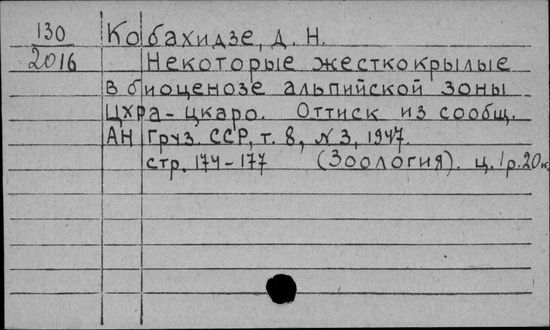 130
2016
Кобахидзе, Д. Н.
Некоторые жесткокрылые
в биоценозе альпийской зоны
Цхра-цкаро. Оттиск из сообщ.
АН Груз. ССР, т. 8, №3, 1947.
стр. 174-177 (Зоология). ц. 1р.20к